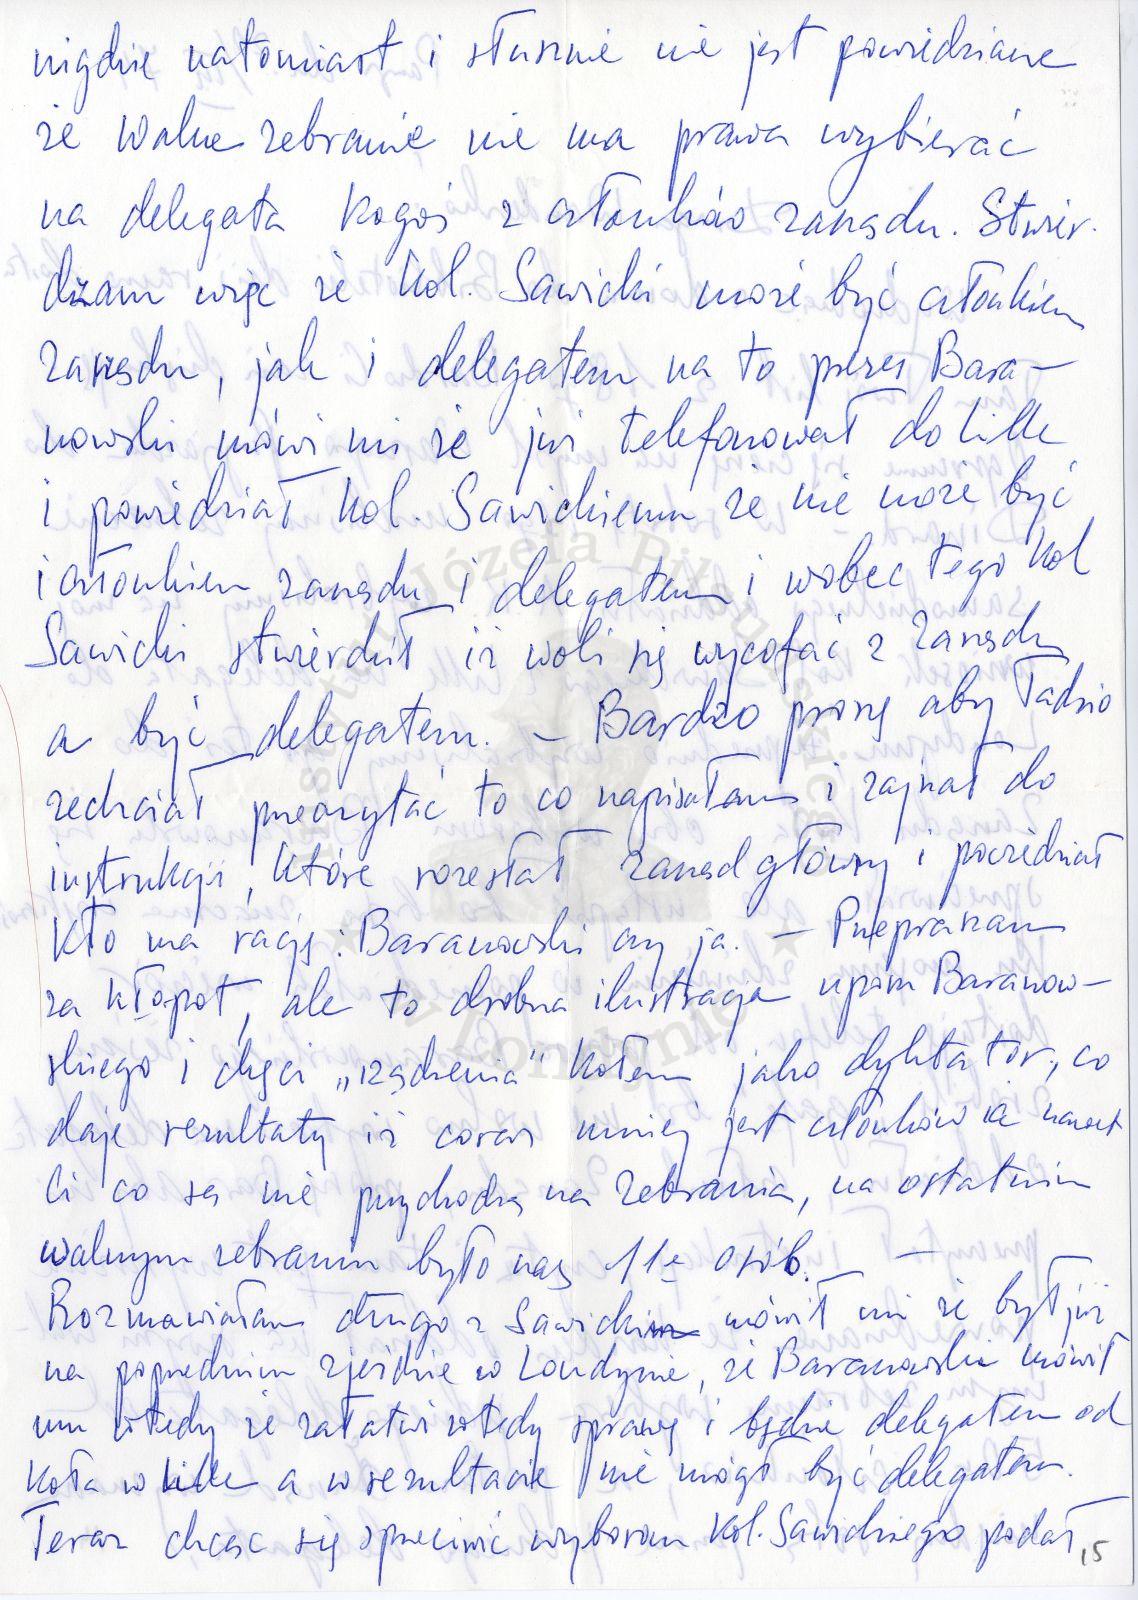 nigdzie natomiast i słusznie nie jest powiedziane
że Walne zebranie nie ma prawa wybierać
na delegata kogoś z członków zarządu. Stwier-
dzam więc że kol. Sawicki może być członkiem
zarządu, jak i delegatem na to prezes Bara-
nowski mówi mi że już telefonował do Lille
i powiedział kol. Sawickiemu że nie może być
i członkiem zarządu i delegatem i wobec tego kol
Sawicki stwierdził iż woli się wycofać z zarządu
a być delegatem. – Bardzo proszę aby Tadzio
zechciał przeczytać to co napisałam i zajrzał do
instrukcji, które rozesłał zarząd główny i powiedział
kto ma rację: Baranowski czy ja. – Przepraszam
za kłopot, ale to drobna ilustracja uporu Baranow-
skiego i chęci „rządzenia" Kołem jako dyktator, co
daje rezultaty iż coraz mniej jest członków a nawet
Ci co są nie przychodzą na zebrania, na ostatnim
walnym zebraniu było nas 11ę osób. –
Rozmawiałam długo z Sawickim mówił mi że był już
na poprzednim zjeździe w Londynie, że Baranowski mówił
mu wtedy że załatwi wtedy sprawę i będzie delegatem od
Koła w Lille a w rezultacie nie mógł być delegatem.
Teraz chcąc się sprzeciwić wyborom kol. Sawickiego podał
15
Instytut Józefa Piłsudskiego
w Londynie